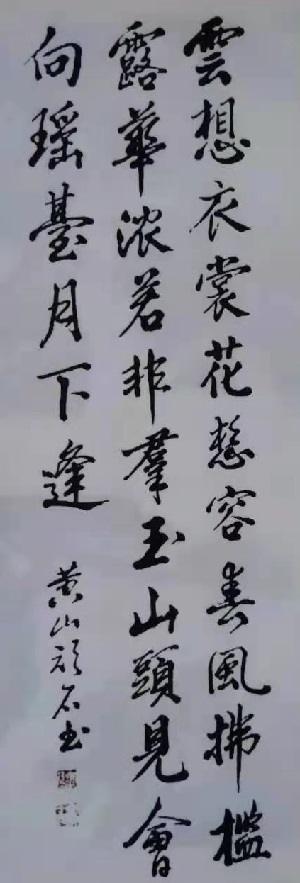 雲想衣裳花想容春風拂檻
露華浓若非羣玉山頭見會
向瑶臺月下逢
黄山顽石书